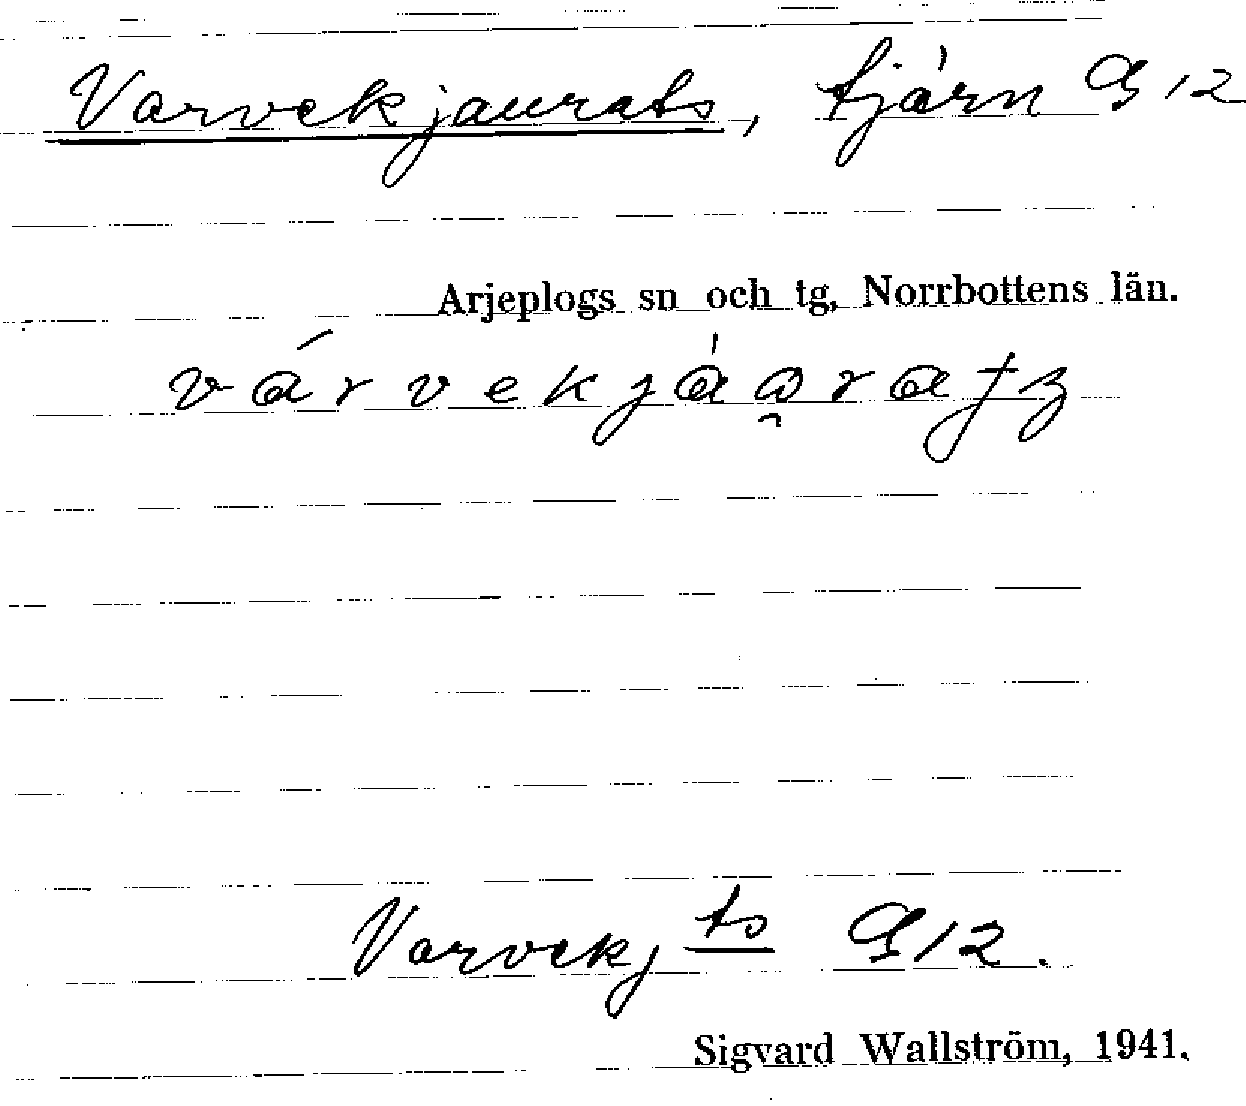 Varvekjaurats, tjärn G 12
Arjeplogs sn och tg, Norrbottens län.
várvekjáɷ̯ratz
Varvekj ts G 12.
Sigvard Wallström, 1941.